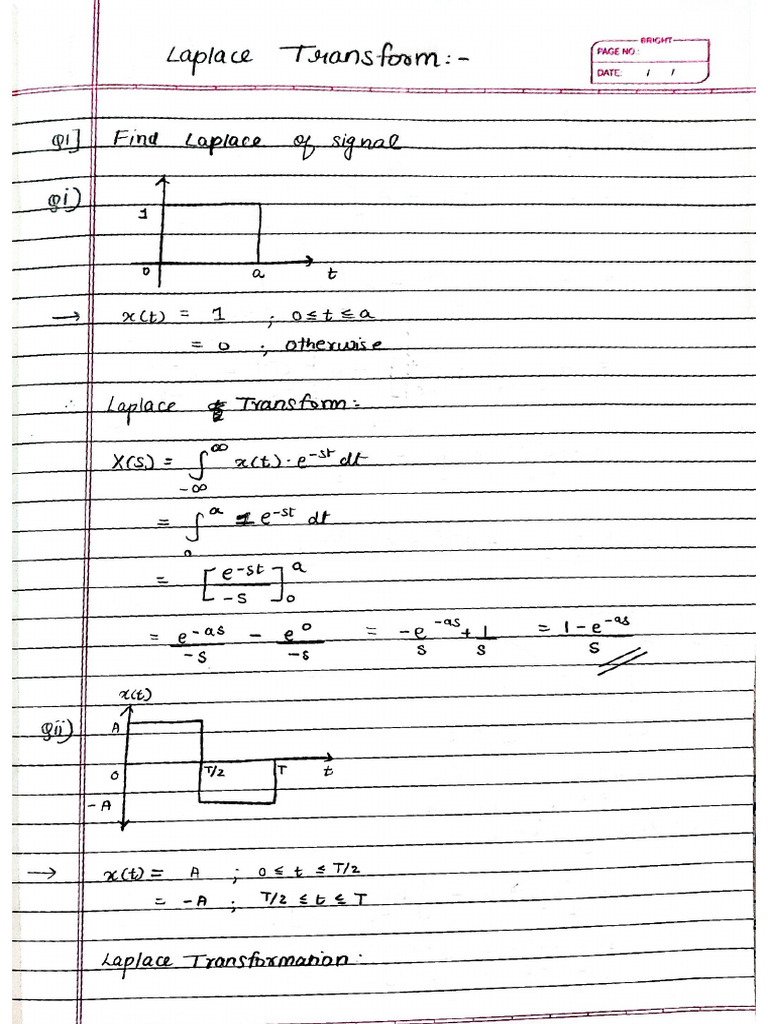 Laplace Transform:-
BRIGHT
PAGE NO.:
DATE: / /
Q1] Find Laplace of signal
Qi)
1
0 a t
→ x(t) = 1 ; 0≤t≤a
= 0 ; otherwise
∴ Laplace Transform:
X(s) = ∫_{-∞}^{∞} x(t)·e^{-st} dt
= ∫_0^a 1 e^{-st} dt
= [e^{-st}/-s]_0^a
= e^{-as}/-s - e^0/-s = -e^{-as}/s + 1/s = 1-e^{-as}/s
x(t)
Qii) A
0 T/2 T t
-A
→ x(t) = A ; 0≤t≤T/2
= -A ; T/2≤t≤T
Laplace Transformation: